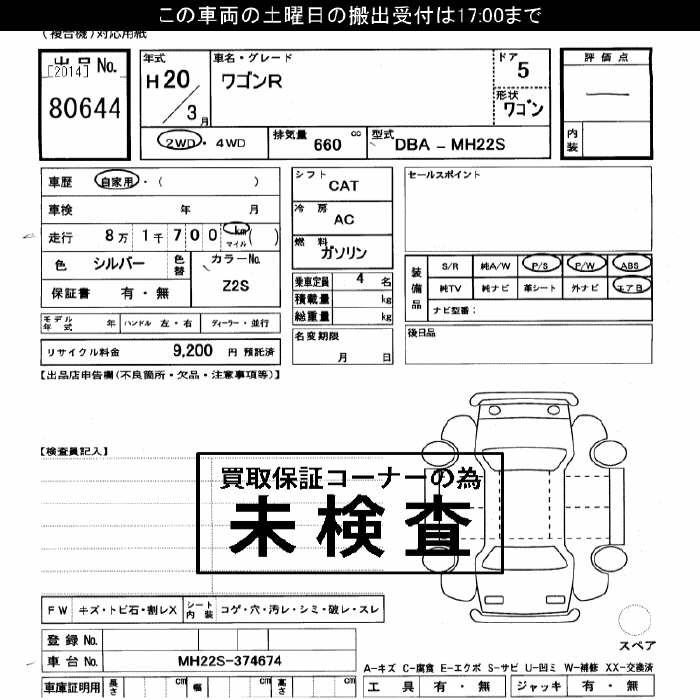 この車両の土曜日の搬出受付は17:00まで
(複合機)対応用紙
出品 No.
[2014]
80644
年式
H20
3月
車名・グレード
ワゴンR
ドア
5
形状
ワゴン
評価点
内装
2WD・4WD
排気量 660 cc
型式 DBA - MH22S
車歴 自家用・( )
車検 年 月
走行 8万1千700 km マイル ( )
色 シルバー 色替 カラーNo. Z2S
保証書 有・無
シフト CAT
冷房 AC
燃料 ガソリン
乗車定員 4 名
積載量 kg
総重量 kg
セールスポイント
装備品
S/R 純A/W P/S P/W ABS
純TV 純ナビ 革シート 外ナビ エアB
ナビ型番:
モデル年式 年 ハンドル 左・右 ディーラー・並行
リサイクル料金 9,200 円 預託済
名変期限
月 日
後日品
【出品店申告欄(不良箇所・欠品・注意事項等)】
【検査員記入】
買取保証コーナーの為
未検査
FW キズ・トビ石・割レX シート内装 コゲ・穴・汚レ・シミ・破レ・スレ
登録 No.
車台 No. MH22S-374674
車庫証明用 長さ cm 幅 cm 高さ cm
スペア
A-キズ C-腐食 E-エクボ S-サビ U-凹ミ W-補修 XX-交換済
工具 有・無 ジャッキ 有・無